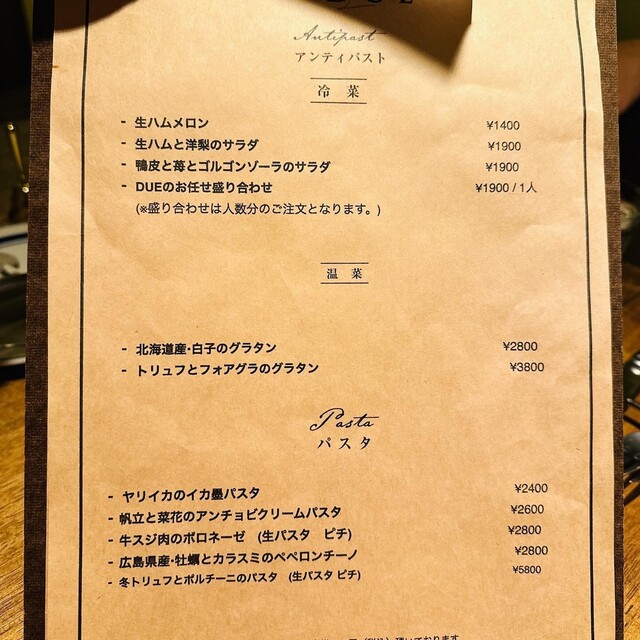 Antipast
アンティパスト
冷菜
- 生ハムメロン ¥1400
- 生ハムと洋梨のサラダ ¥1900
- 鴨皮と苺とゴルゴンゾーラのサラダ ¥1900
- DUEのお任せ盛り合わせ ¥1900 / 1人
(※盛り合わせは人数分のご注文となります。)
温菜
- 北海道産・白子のグラタン ¥2800
- トリュフとフォアグラのグラタン ¥3800
Pasta
パスタ
- ヤリイカのイカ墨パスタ ¥2400
- 帆立と菜花のアンチョビクリームパスタ ¥2600
- 牛スジ肉のボロネーゼ (生パスタ ピチ) ¥2800
- 広島県産・牡蠣とカラスミのペペロンチーノ ¥2800
- 冬トリュフとポルチーニのパスタ (生パスタ ピチ) ¥5800
頂いております